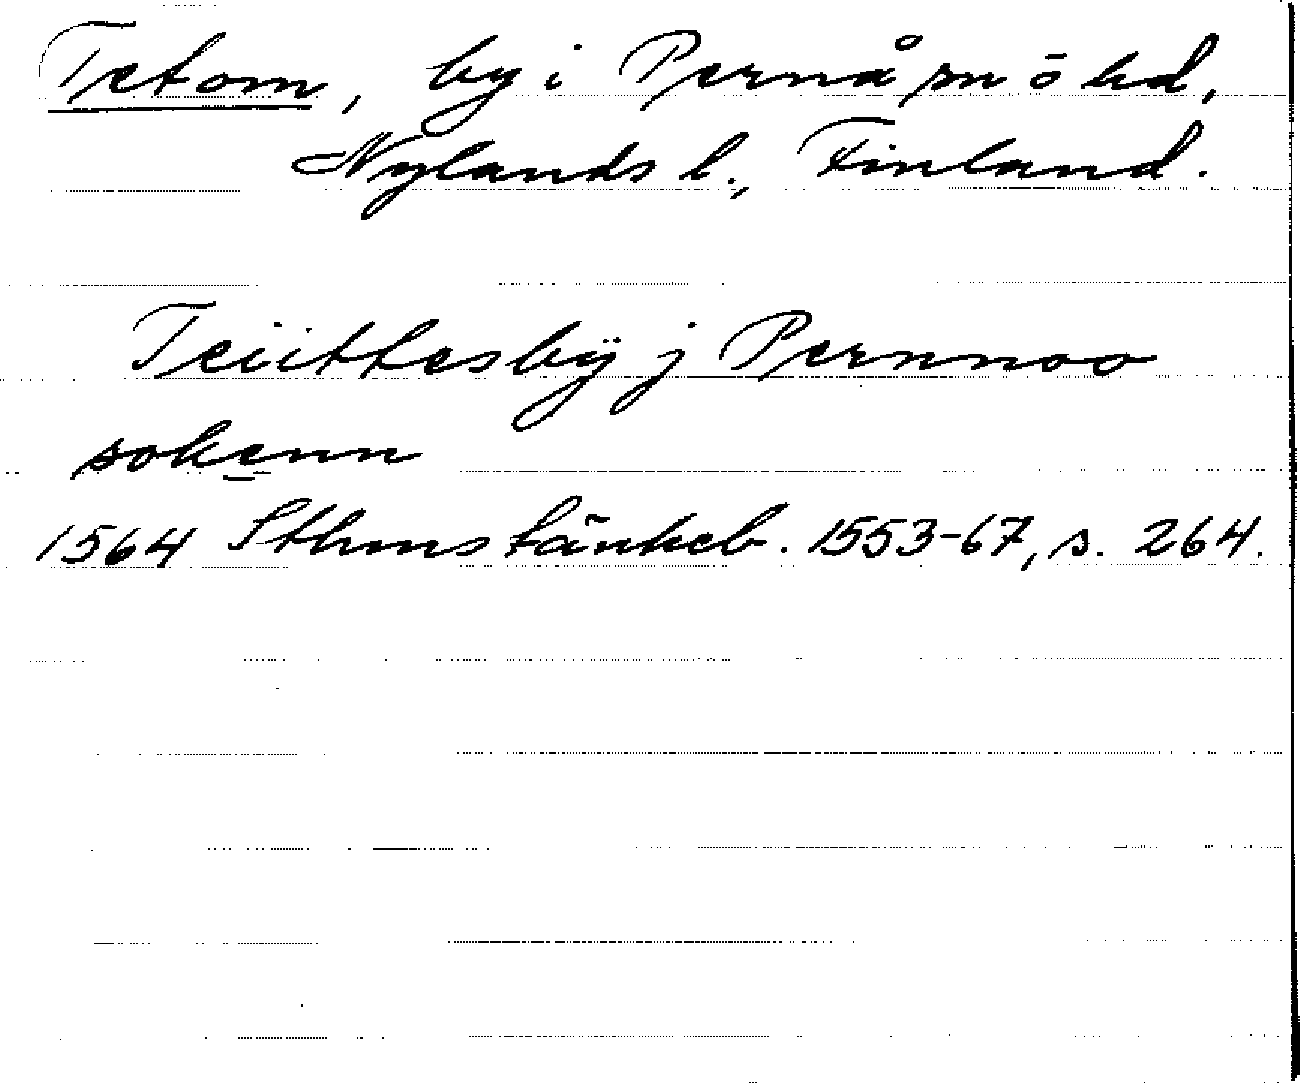 Tetom, by i Pernå sn ö hd,
Nylands l., Finland.
Teiittesbÿ j Pernnoo
sokenn
1564 Sthms tänkeb. 1553-67, s. 264.